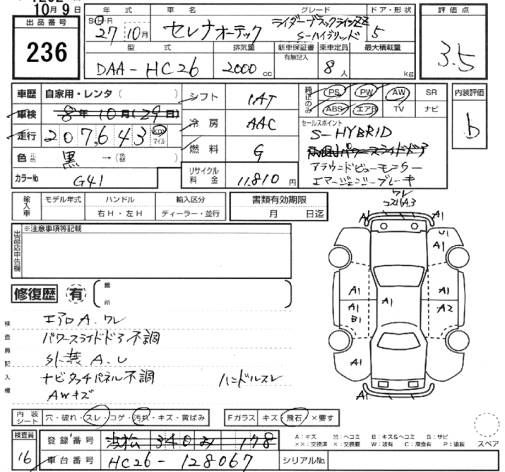 10月9日
出品番号
236
年式
車名
グレード
ドア・形状
評価点
27年10月
セレナオーテック
ライダーブラックライン ZZ
S-ハイブリッド
5
3.5
型式
排気量
新車保証書
有無記入
乗車定員
最大積載量
DAA-HC26
2000 cc
8人
kg
車歴 自家用・レンタ
シフト 1AT
純正のみ PS PW AW SR
ABS エアB TV ナビ
内装評価
b
車検 8年10月(29日)
走行 207,643 km マイル
冷房 AAC
セールスポイント
S-HYBRID
パワースライドドア
アラウンドビューモニター
エマージェンシーブレーキ
色 黒 → 色(
燃料 G
カラーNo G41
リサイクル料金 11,810円
輸入車
モデル年式
ハンドル
右H・左H
輸入区分
ディーラー・並行
書類有効期限
月 日迄
出品店申告欄
※注意事項等記載
修復歴 有
箇所
検査員記入欄
エアロA、ワレ
パワースライドドア不調
外装A、U
ナビタッチパネル不調 ハンドルスレ
AWキズ
ワレ
A1
A1
U1
A1
A1
A2
A1
A1
A2
B1
A1
内装シート
穴・破れ・スレ・コゲ・汚れ・キズ・黄ばみ
Fガラス キズ・飛石・×要す
検査員
16
登録番号 340 178
車台番号 HC26-128067
シリアルNo.
A：キズ
U：ヘコミ
B：キズ&ヘコミ
S：サビ
××：交換済
X：交換要
W：波有
C：腐食有
P：塗装
スペア